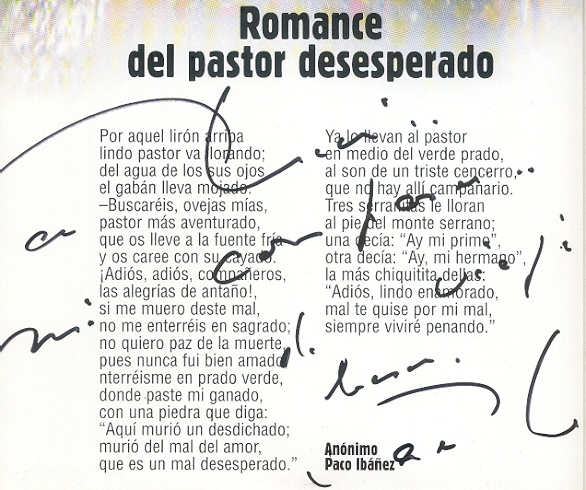 Romance
del pastor desesperado
Por aquel lirón arriba
lindo pastor va llorando;
del agua de los sus ojos
el gabán lleva mojado.
–Buscaréis, ovejas mías,
pastor más aventurado,
que os lleve a la fuente fría
y os caree con su cayado.
¡Adiós, adiós, compañeros,
las alegrías de antaño!,
si me muero deste mal,
no me enterréis en sagrado;
no quiero paz de la muerte,
pues nunca fui bien amado;
nterréisme en prado verde,
donde paste mi ganado,
con una piedra que diga:
“Aquí murió un desdichado;
murió del mal del amor,
que es un mal desesperado.”
Ya lo llevan al pastor
en medio del verde prado,
al son de un triste cencerro,
que no hay allí campanario.
Tres serranitas le lloran
al pie del monte serrano;
una decía: “Ay mi primo”,
otra decía: “Ay, mi hermano”,
la más chiquitita dellas:
“Adiós, lindo enamorado,
mal te quise por mi mal,
siempre viviré penando.”
Anónimo
Paco Ibáñez